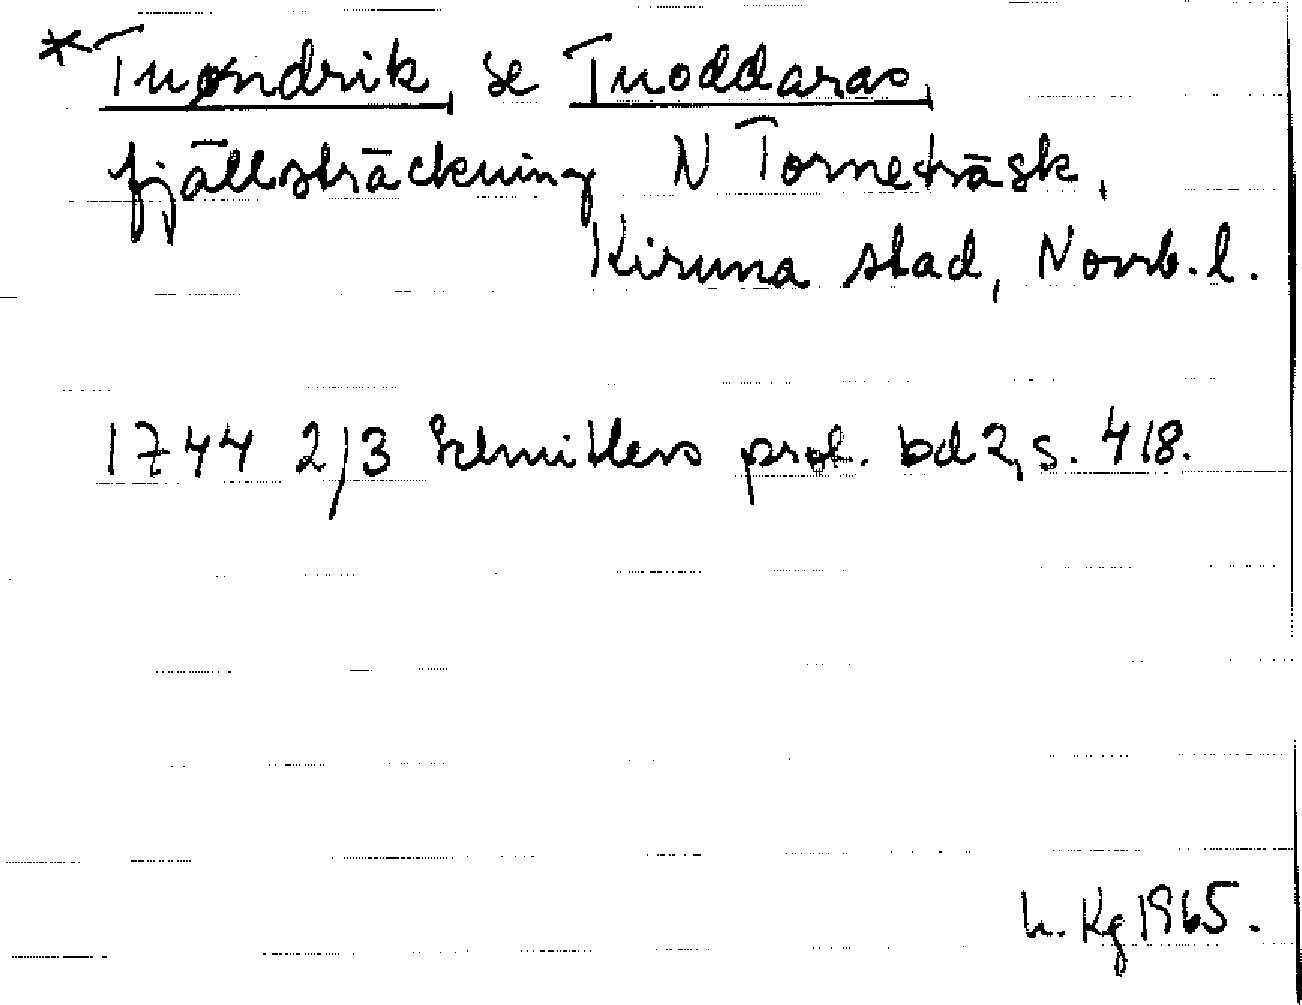 *Tuøndrik, se Tuoddaras,
fjällsträckning N Torneträsk,
Kiruna stad, Norrb. l.
1744 2/3 Schnitlers prot. bd 2, s. 418.
h. Kg 1965.